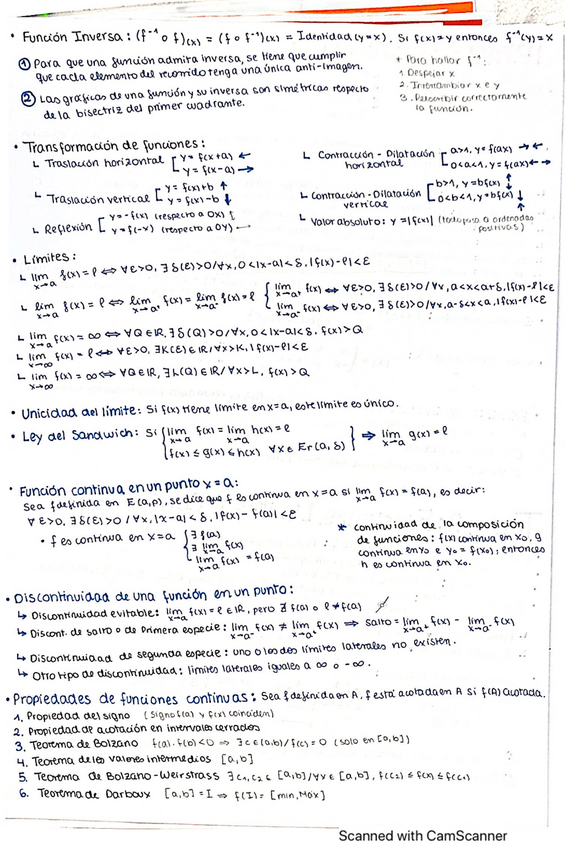 • Función Inversa: (f⁻¹ o f)(x) = (f o f⁻¹)(x) = Identidad (y=x). Si f(x)=y entonces f⁻¹(y)=x
① Para que una función admita inversa, se tiene que cumplir
que cada elemento del recorrido tenga una única anti-imagen.
② Las gráficas de una función y su inversa son simétricas respecto
de la bisectriz del primer cuadrante.
* Para hallar f⁻¹:
1. Despejar x
2. Intercambiar x e y
3. Reescribir correctamente
la función.
• Transformación de funciones:
↳ Traslación horizontal [ y = f(x+a) ←
y = f(x-a) →
↳ Traslación vertical [ y = f(x)+b ↑
y = f(x)-b ↓
↳ Reflexión [ y = -f(x) (respecto a OX)
y = f(-x) (respecto a OY)
↳ Contracción - Dilatación horizontal [ a>1, y=f(ax) → ←
0<a<1, y=f(ax) ← →
↳ Contracción - Dilatación vertical [ b>1, y=bf(x) ↕
0<b<1, y=bf(x) ↓ ↑
↳ Valor absoluto: y = |f(x)| (todo pasa a ordenadas
positivas)
• Límites:
↳ lim x→a f(x) = l ⇔ ∀ε>0, ∃ δ(ε)>0/∀x, 0<|x-a|<δ, |f(x)-l|<ε
↳ lim x→a f(x) = l ⇔ lim x→a⁺ f(x) = lim x→a⁻ f(x) = l { lim x→a⁺ f(x) ⇔ ∀ε>0, ∃ δ(ε)>0/∀x, a<x<a+δ, |f(x)-l|<ε
lim x→a⁻ f(x) ⇔ ∀ε>0, ∃ δ(ε)>0/∀x, a-δ<x<a, |f(x)-l|<ε
↳ lim x→a f(x) = ∞ ⇔ ∀Q∈ℝ, ∃ δ(Q)>0/∀x, 0<|x-a|<δ, f(x)>Q
↳ lim x→∞ f(x) = l ⇔ ∀ε>0, ∃K(ε)∈ℝ/∀x>K, |f(x)-l|<ε
↳ lim x→∞ f(x) = ∞ ⇔ ∀Q∈ℝ, ∃L(Q)∈ℝ/∀x>L, f(x)>Q
• Unicidad del límite: Si f(x) tiene límite en x=a, este límite es único.
• Ley del Sandwich: Si { lim x→a f(x) = lim x→a h(x) = l
f(x) ≤ g(x) ≤ h(x) ∀x∈Er(a, δ) } ⇒ lim x→a g(x) = l
• Función continua en un punto x=a:
Sea f definida en E(a,p), se dice que f es continua en x=a si lim x→a f(x) = f(a), es decir:
∀ε>0, ∃ δ(ε)>0 / ∀x, |x-a|<δ, |f(x)-f(a)|<ε
• f es continua en x=a { ∃ f(a)
∃ lim x→a f(x)
lim x→a f(x) = f(a)
* Continuidad de la composición
de funciones: f(x) continua en x₀, g
continua en y₀ e y₀ = f(x₀); entonces
h es continua en x₀.
• Discontinuidad de una función en un punto:
↳ Discontinuidad evitable: lim x→a f(x) = l ∈ℝ, pero ∄ f(a) o l≠f(a)
↳ Discont. de salto o de Primera especie: lim x→a⁻ f(x) ≠ lim x→a⁺ f(x) ⇒ salto = lim x→a⁺ f(x) - lim x→a⁻ f(x)
↳ Discontinuidad de segunda especie: uno o los dos límites laterales no existen.
↳ Otro tipo de discontinuidad: límites laterales iguales a ∞ o -∞.
• Propiedades de funciones continuas: Sea f definida en A, f está acotada en A si f(A) acotada.
1. Propiedad del signo (Signo f(a) y f(x) coinciden)
2. Propiedad de acotación en intervalos cerrados
3. Teorema de Bolzano f(a)·f(b)<0 ⇒ ∃ c∈(a,b)/f(c)=0 (solo en [a,b])
4. Teorema de los valores intermedios [a,b]
5. Teorema de Bolzano-Weirstrass ∃ c₁, c₂ ∈ [a,b]/∀x∈[a,b], f(c₂) ≤ f(x) ≤ f(c₁)
6. Teorema de Darboux [a,b]=I ⇒ f(I)=[min, Máx]
Scanned with CamScanner